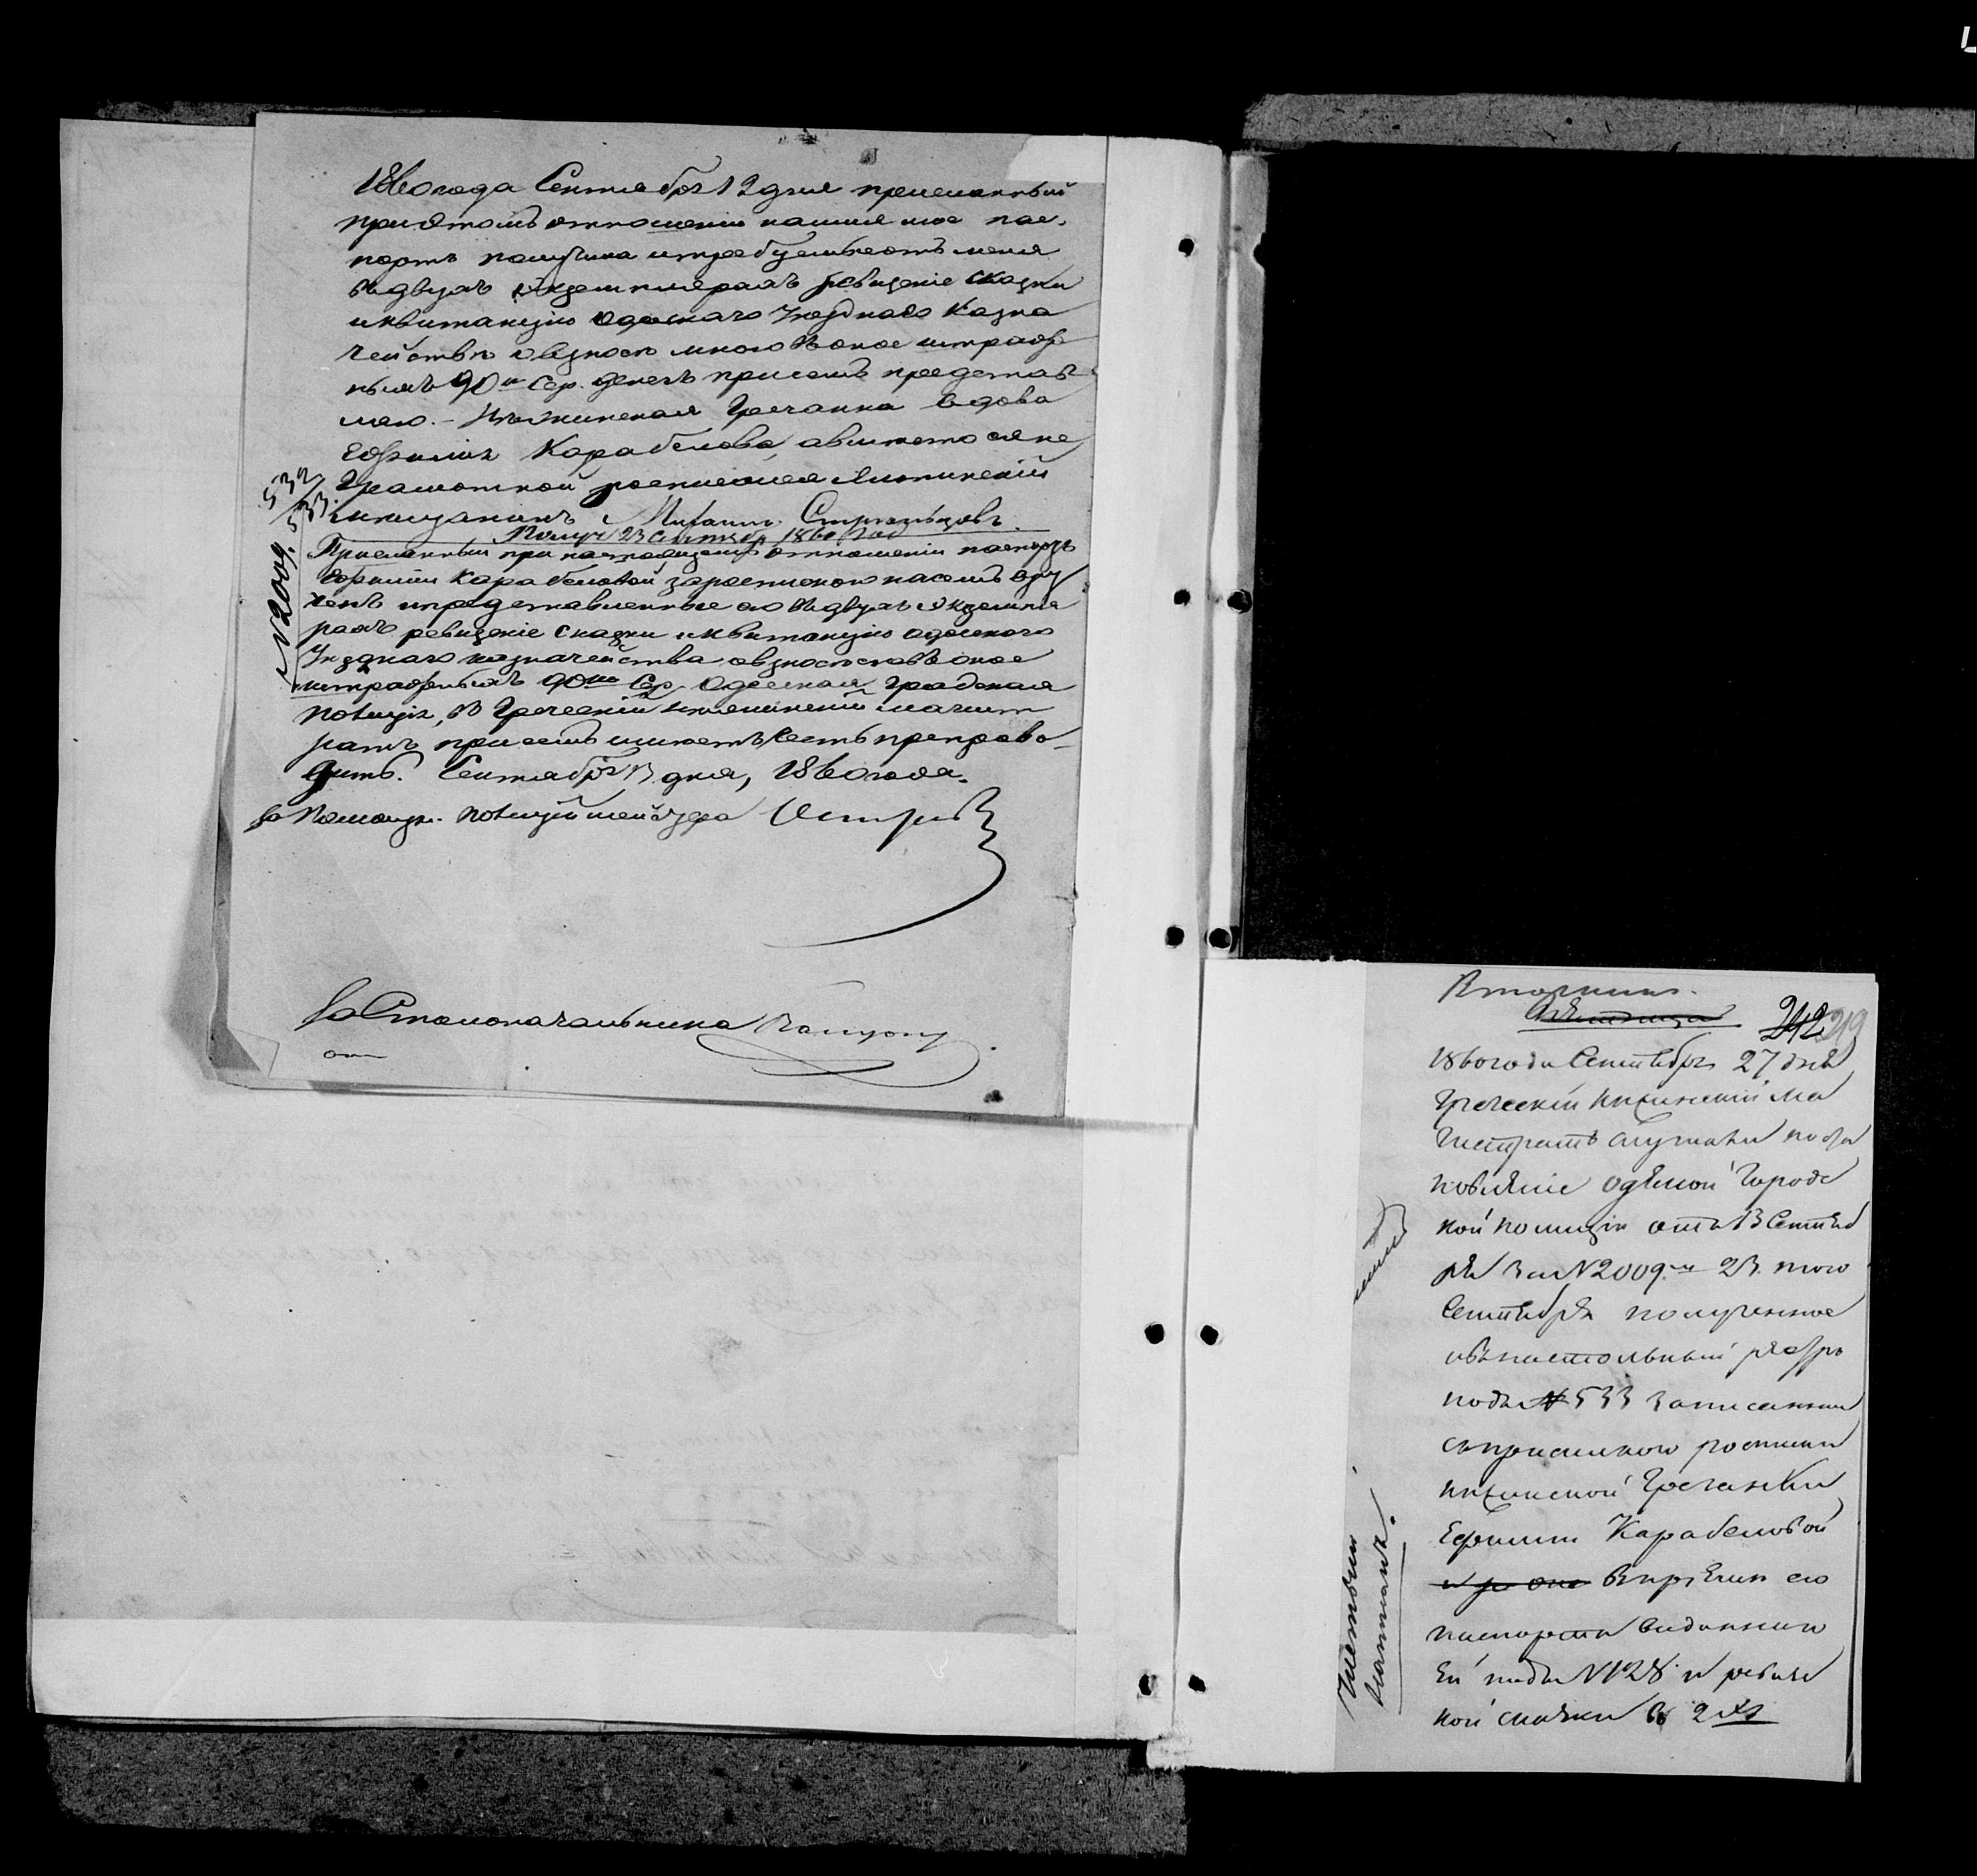 1860 года Сентября 12 дня присланный
при этомъ отношеніи на имя мое пас-
портъ получила и требуемые отъ меня
въ двухъ экземплярахъ ревизкіе сказки
и квитанцію Одескаго Уезднаго Казна
чейства о взносе мною въ оное штраф
ныхъ 90 к сер. денегъ при семъ представ
ляю. – Нежинская Гречанка вдова
Ефимія Карабелова, а вместо ея не
грамотной росписался
мещанинъ Михаилъ
Получ 23 Сентября 1860 года
Присланный при настоящемъ отношеніи паспортъ
Ефиміи Карабеловой, за роспискою на семъ вру
ченъ и представленные ею въ двухъ экземпля
рахъ ревизкіе сказки и квитанцію Одеского
Уезднаго казначейства о взносе ею въ оное
штрафныхъ 90 ко Сер. Одесская Градская
Полиція, въ Греческій Нежинскій магист
ратъ при семъ имеетъ честь препрово-
дить. Сентября 13 дня, 1860 года.
За Помощн. Полицiймейстера
За Столоначальника
№ 2009.
532/533.
212
1860 года Сентября 27 дня
Греческій Нѣжинскій Ма
гистратъ слушали
Одесской Городс
кой полиціи отъ 13 Сентяб
ря за № 2009 м 23 того
Сентября полученное
и въ настольный реестръ
подъ № 533 записанное
съ роспискою
нѣжинской Гречанки
Ефиміи Карабеловой
въ врученіи ею
паспорта выданного
ей подъ № 128 и ревизс
кой сказки в 2хъ